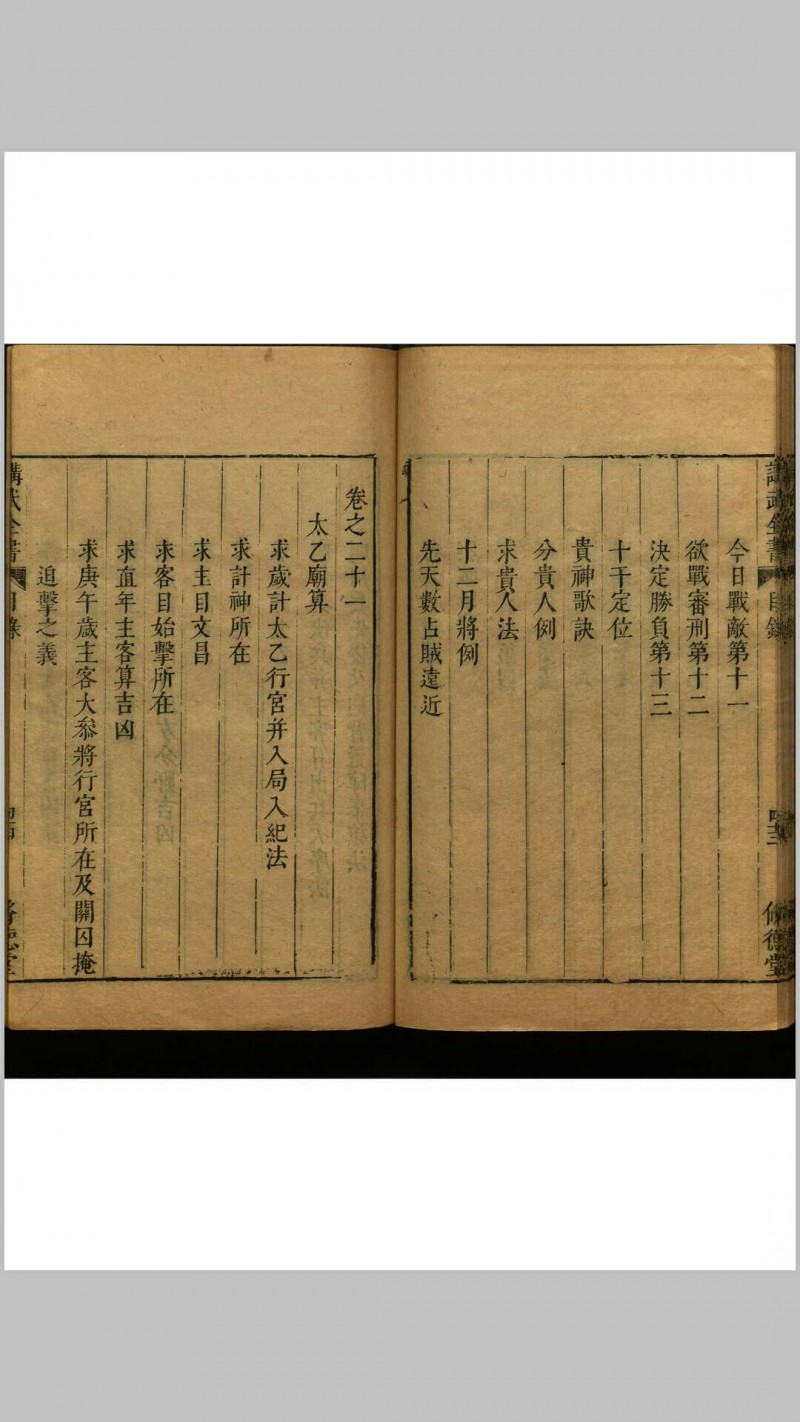 講武全書 目錄 修德堂
今日戰敵第十一
欲戰審刑第十二
決定勝負第十三
十干定位
貴神歌訣
分貴人例
求貴人法
十二月將例
先天數占賊遠近
卷之二十一
太乙廟算
求歲計太乙行宮并入局入紀法
求計神所在
求主目文昌
求客目始擊所在
求直年主客算吉凶
求庚午歲主客大叅將行宮所在及開囚掩
追擊之義
講武全書 目錄